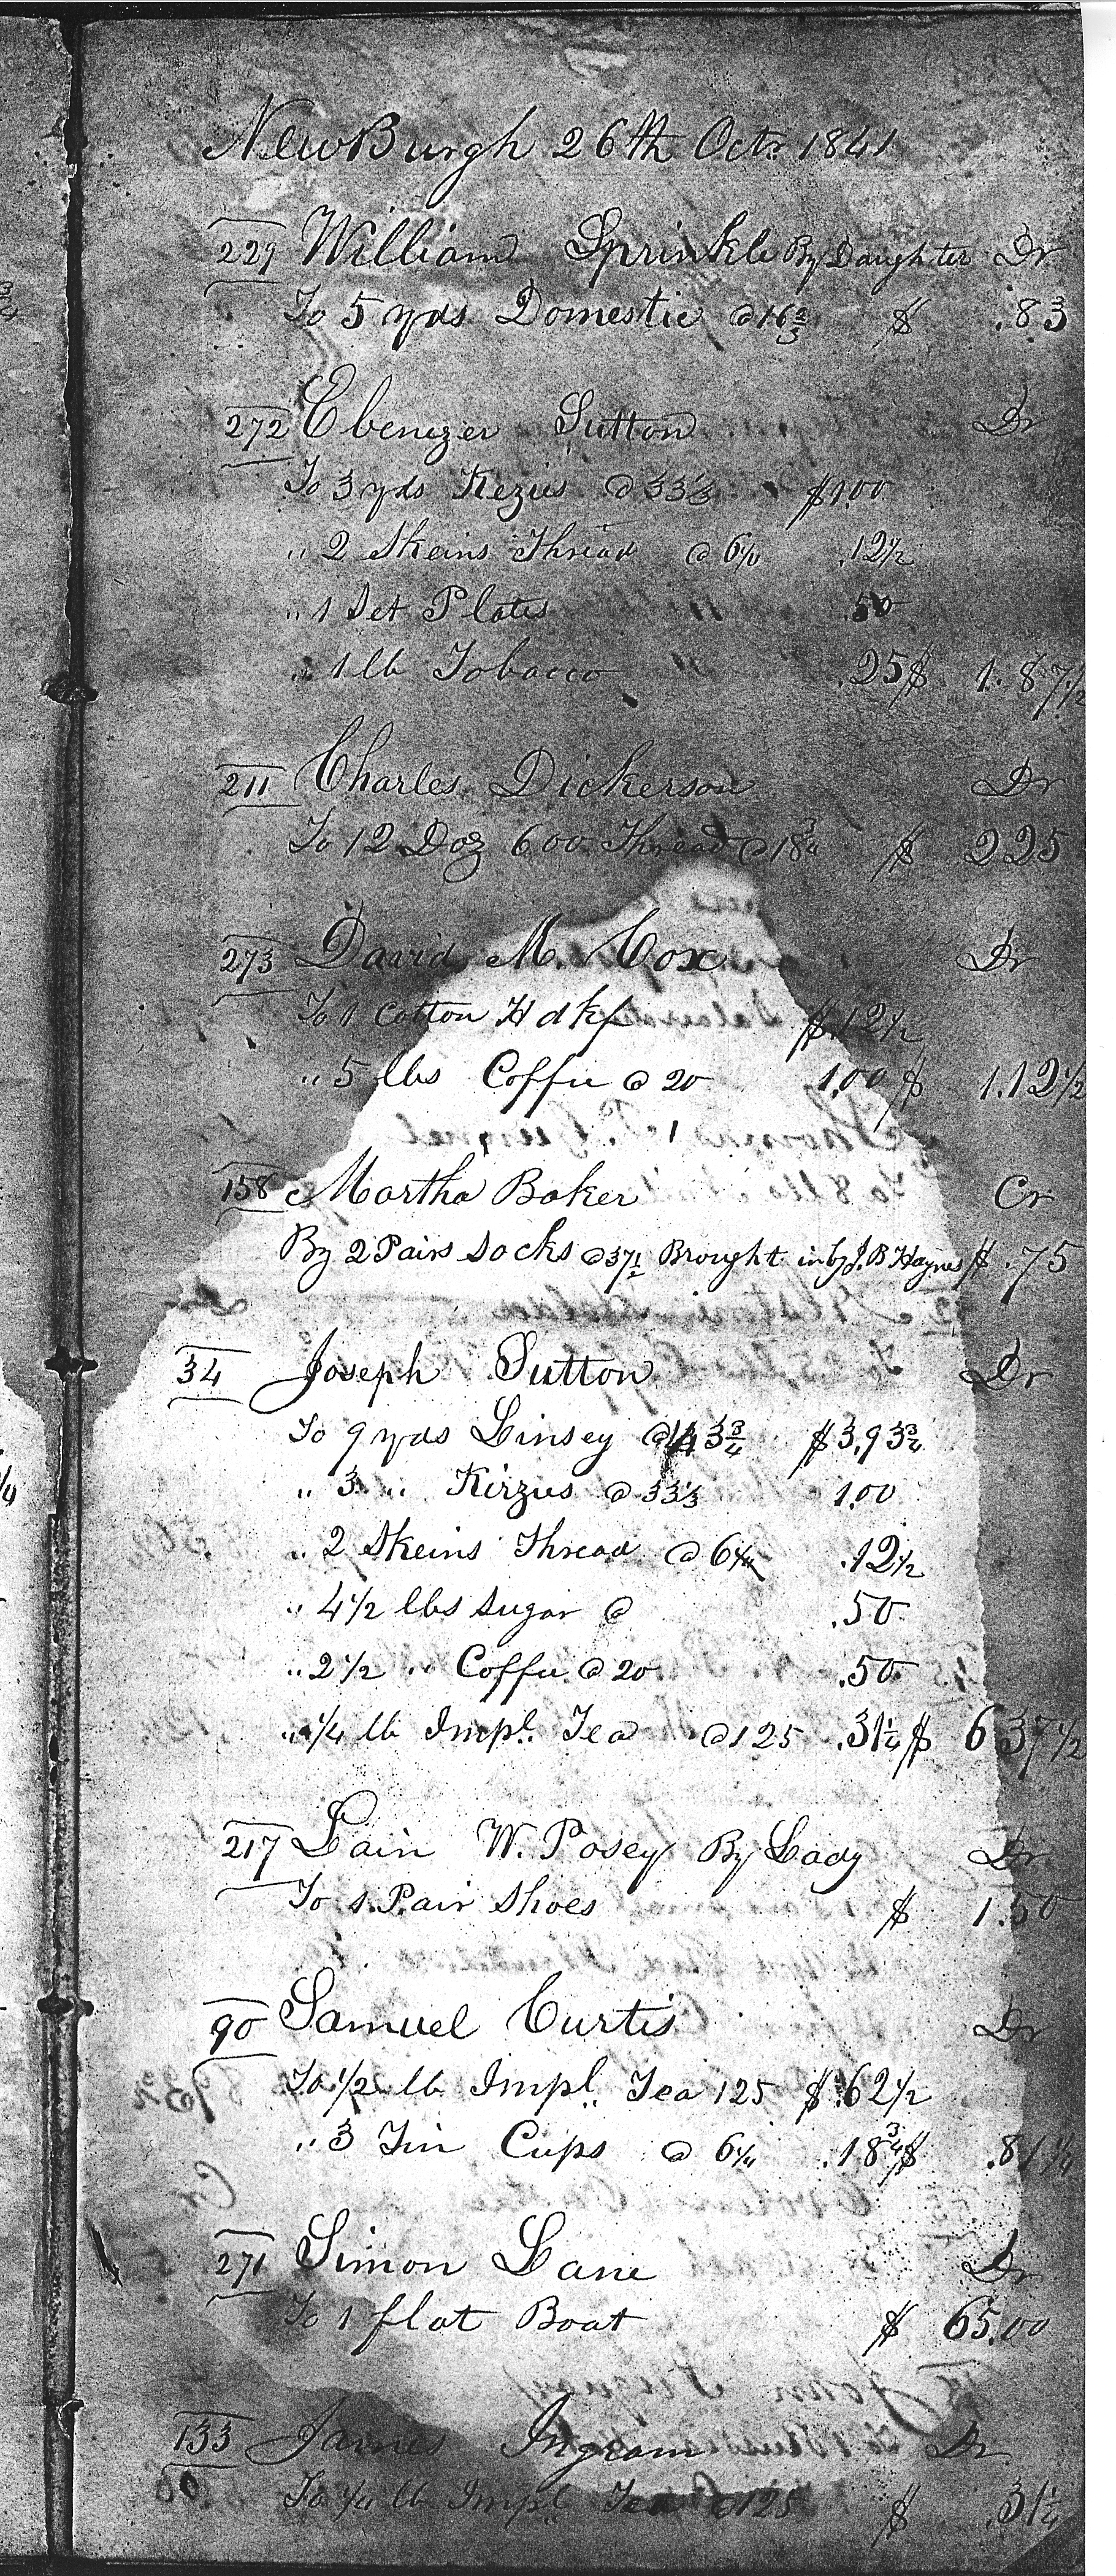 NewBurgh 26th Octr. 1841
229 William Sprinkle By Daughter Dr
To 5 yds Domestic @ 16 2/3 $ .83
272 Ebenezer Sutton Dr
To 3 yds Kezius @ 33 1/3 $1.00
" 2 Skeins Thread @ 6 1/4 .12 1/2
" 1 Set Plates " .50
" 1 lb Tobacco " .25 $ 1.87 1/2
211 Charles Dickerson Dr
To 12 Doz 600 Thread @ 18 3/4 $ 2 25
273 David M. Cox Dr
To 1 Cotton Hdkf $.12 1/2
" 5 lbs Coffee @ 20 1.00 $ 1.12 1/2
158 Martha Baker Cr
By 2 Pairs Socks @ 37 1/2 Brought in by J. B Haynes $ .75
34 Joseph Sutton Dr
To 9 yds Linsey @ 43 3/4 $3.93 3/4
" 3 " Kirzus @ 33 1/3 1.00
" 2 Skeins Thread @ 6 1/4 .12 1/2
" 4 1/2 lbs Sugar @ .50
" 2 1/2 " Coffee @ 20 .50
" 1/4 lb Impl. Tea @ 125 .31 1/4 $ 6 37 1/2
217 Lain W. Posey By Lady Dr
To 1 Pair Shoes $ 1.50
90 Samuel Curtis Dr
To 1/2 lb Impl. Tea 125 $.62 1/2
" 3 Tin Cups @ 6 1/4 .18 3/4 $ .81 1/4
271 Simon Lane Dr
To 1 flat Boat $ 65.00
133 James Ingram Dr
To 1/4 lb Impl. Tea @ 125 $ .31 1/4